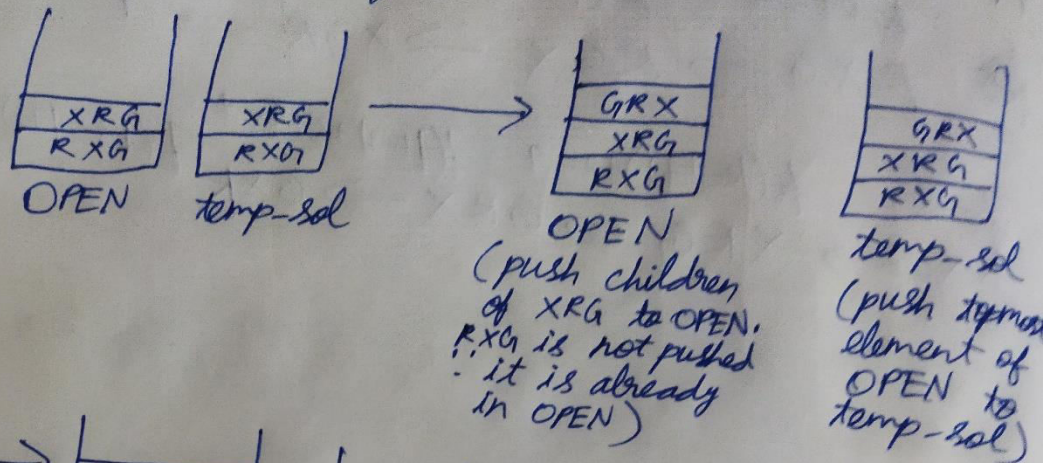 XRG
RXG
OPEN
XRG
RXG
temp-sol
GRX
XRG
RXG
OPEN
(push children
of XRG to OPEN.
RXG is not pushed
∵ it is already
in OPEN)
GRX
XRG
RXG
temp-sol
(push topmost
element of
OPEN to
temp-sol)